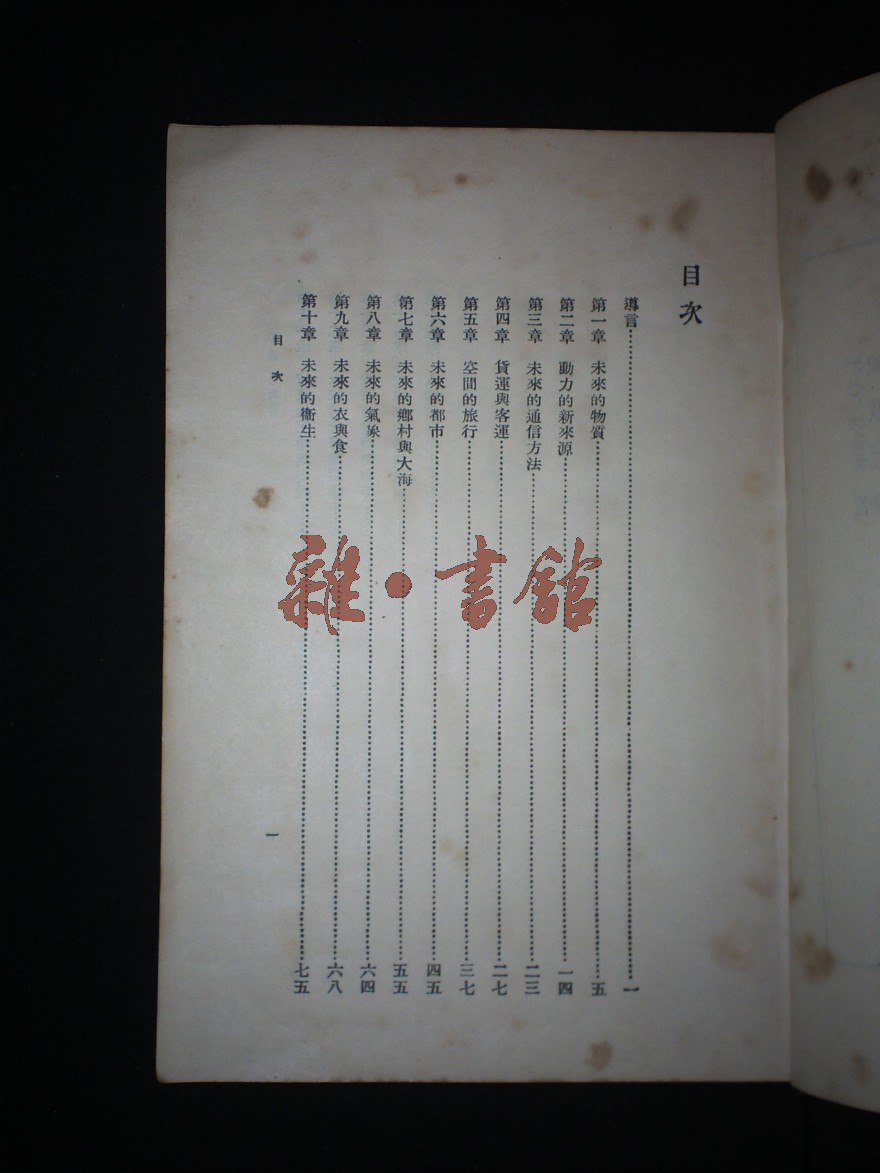 目次
導言……一
第一章 未來的物質……五
第二章 動力的新來源……一四
第三章 未來的通信方法……二三
第四章 貨運與客運……二七
第五章 空間的旅行……三七
第六章 未來的都市……四五
第七章 未來的鄉村與大海……五五
第八章 未來的氣象……六四
第九章 未來的衣與食……六八
第十章 未來的衞生……七五
目次
一
雜·書館